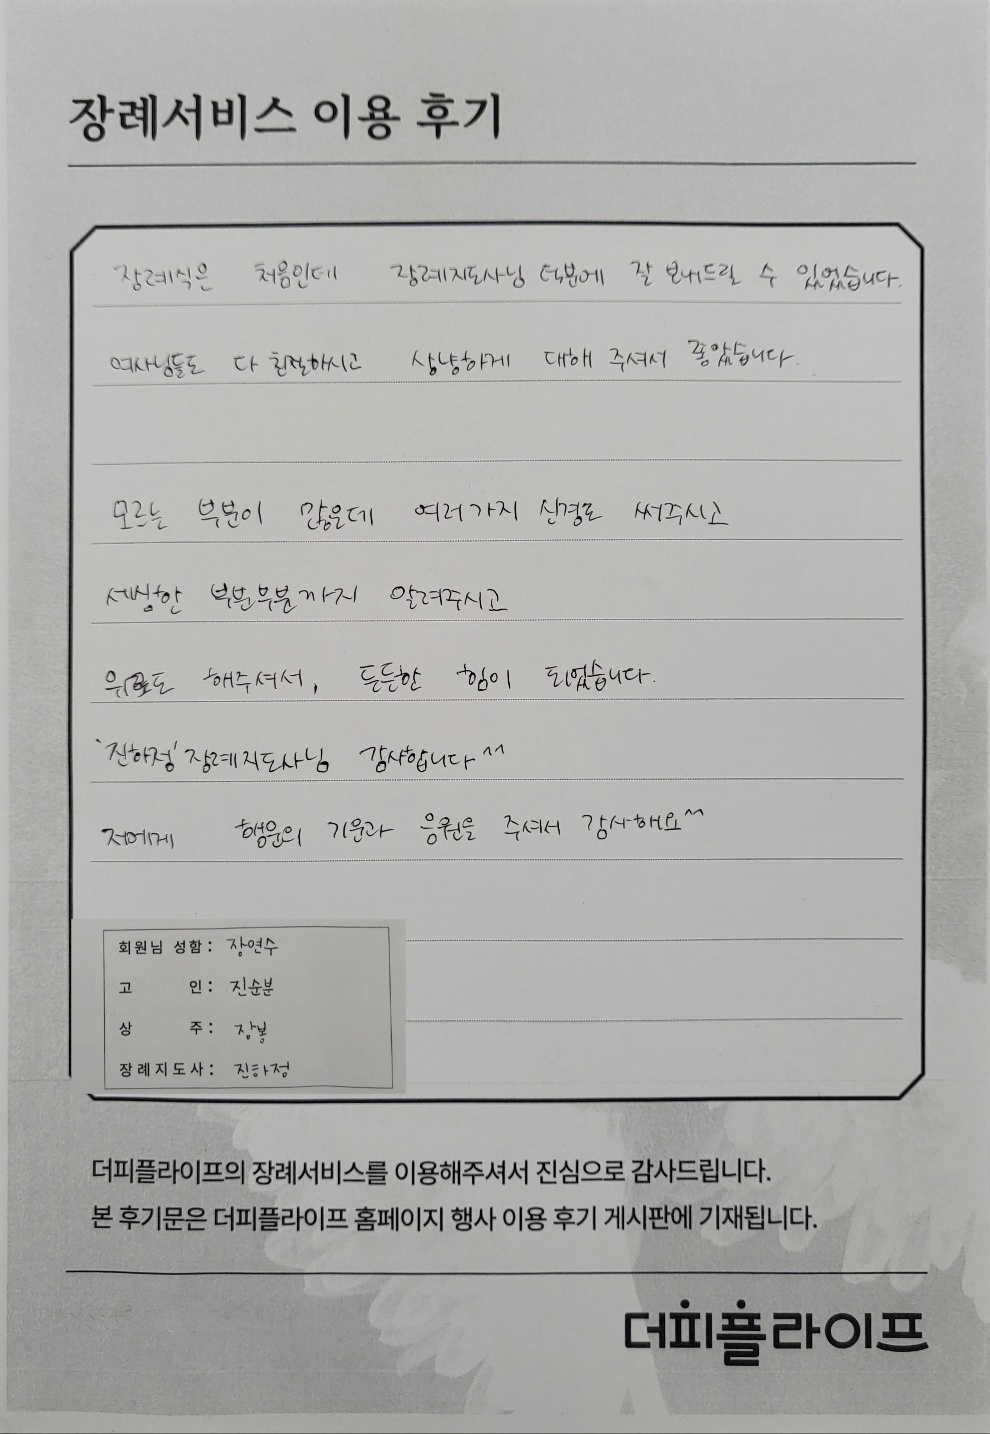 장례서비스 이용 후기
장례식은 처음인데 장례지도사님 덕분에 잘 보내드릴 수 있었습니다.
여사님들도 다 친절하시고 상냥하게 대해 주셔서 좋았습니다.
모르는 부분이 많은데 여러가지 신경도 써주시고
세심한 부분부분까지 알려주시고
위로도 해주셔서, 든든한 힘이 되었습니다.
'진하정' 장례지도사님 감사합니다^^
저에게 행운의 기운과 응원을 주셔서 감사해요^^
회원님 성함: 장연수
고 인: 진순분
상 주: 장봉
장례지도사: 진하정
더피플라이프의 장례서비스를 이용해주셔서 진심으로 감사드립니다.
본 후기문은 더피플라이프 홈페이지 행사 이용 후기 게시판에 기재됩니다.
더피플라이프